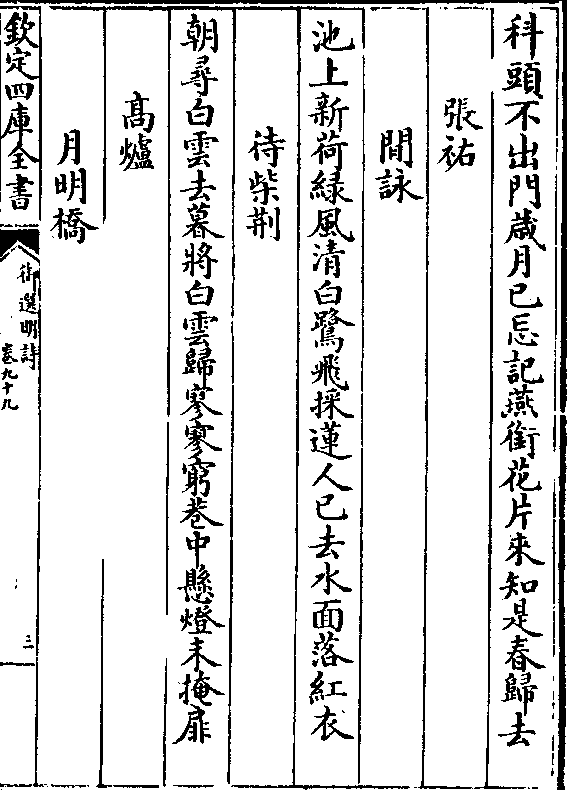 科頭不出門歲月已忘記燕銜花片來知是春歸去
張祐
閒詠
池上新荷緑風清白鷺飛採蓮人已去水面落紅衣
待柴荆
朝尋白雲去暮將白雲歸寥寥窮巷中懸燈未掩扉
高爐
月明橋
欽定四庫全書
御選明詩
卷九十九
三